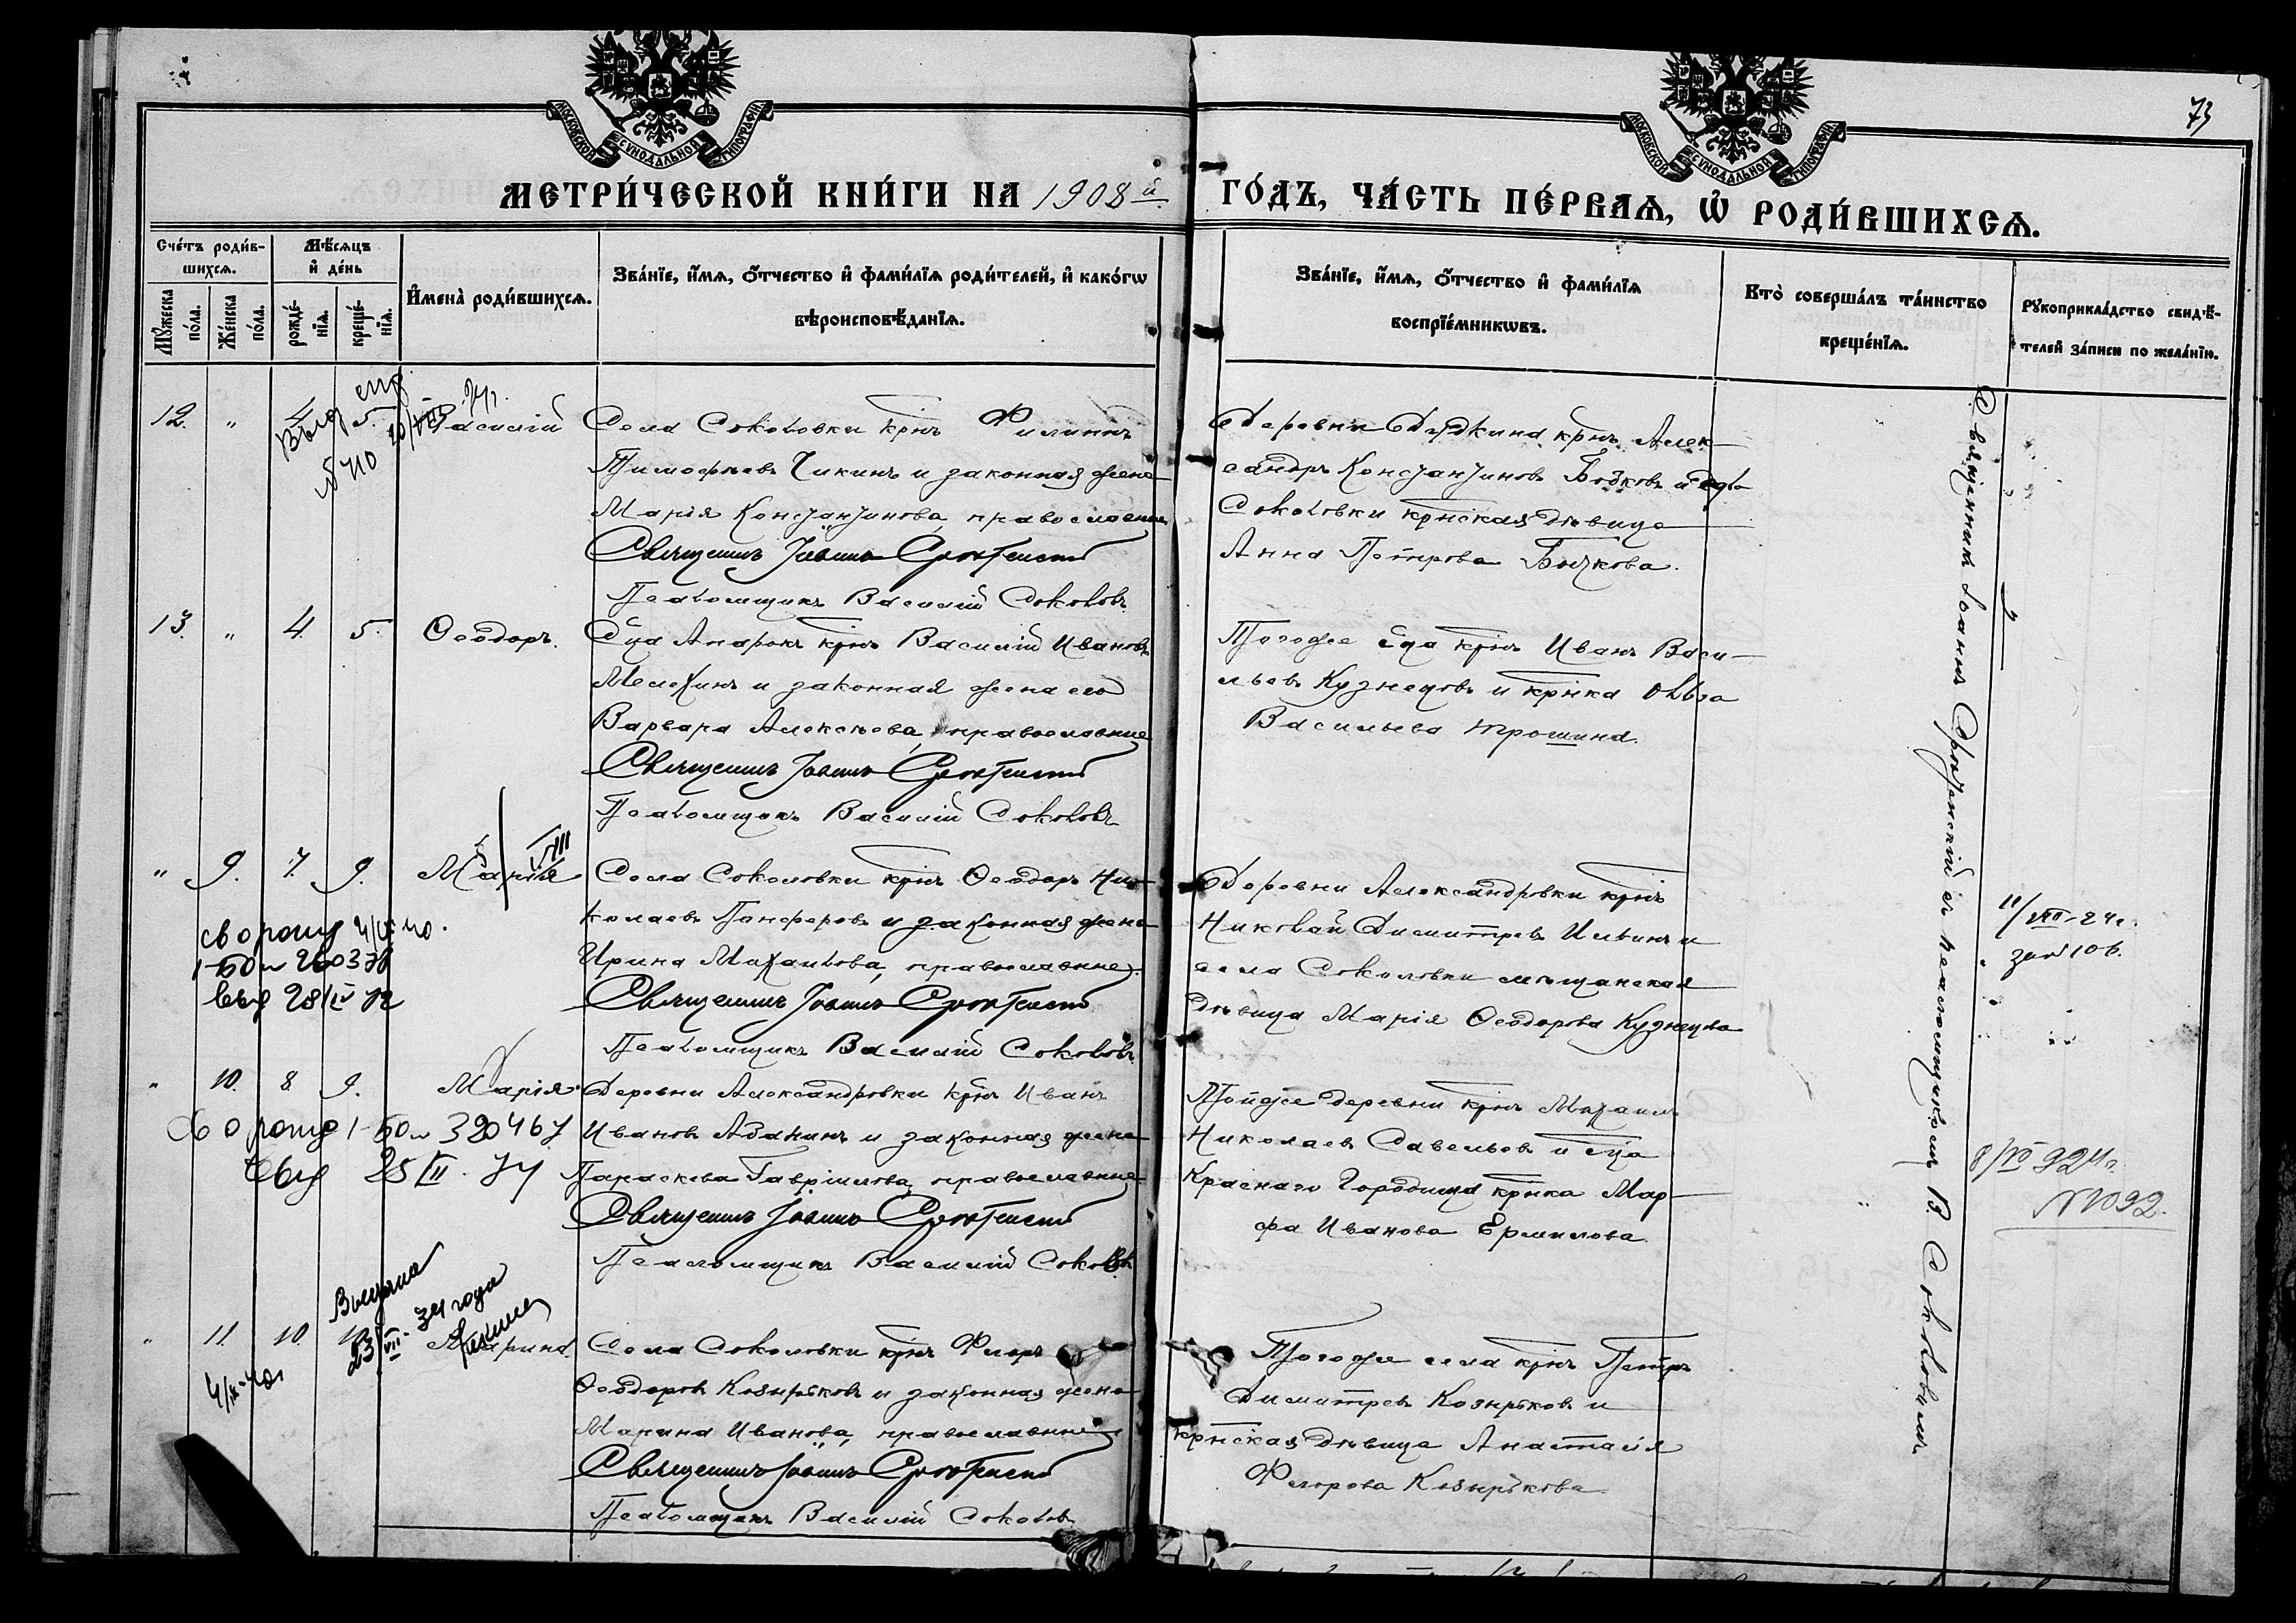 73
МОСКОВСКОЙ СѴНОДАЛЬНОЙ ТИПОГРАФІИ
МОСКОВСКОЙ СѴНОДАЛЬНОЙ ТИПОГРАФІИ
МЕТРИ́ЧЕСКОЙ КНИ́ГИ НА 1908й ГО́ДЪ, ЧА́СТЬ ПЕ́РВАѦ, Ѡ҆ РОДИ́ВШИХСѦ.
Сче́тъ роди́в-
шихсѧ.
Мꙋ́жеска по́ла.
Же́нска по́ла.
Мѣ́сѧцъ
и҆ де́нь
рожде́-нїѧ.
креще́-нїѧ.
И҆мена̀ роди́вшихсѧ.
Зва́нїе, и҆́мѧ, ѻ҆́тчество и҆ фами́лїѧ роди́телей, и҆ како́гѡ
вѣроисповѣ́данїѧ.
Зва́нїе, и҆́мѧ, ѻ҆́тчество и҆ фами́лїѧ
воспрїе́мникѡвъ.
Кто̀ соверша́лъ та́инство
креще́нїѧ.
Рꙋкоприкла́дство свидѣ́-
телей за́писи по жела́нїю.
12. " 4. 5. Василій
Села Соколовки крнъ Филиппъ
Тимофѣевъ Чикинъ и законная жена
Марія Константинова, православные
Священникъ Іоаннъ Срѣтенскій
Псаломщикъ Василій Соколовъ
Деревни Дудкина крнъ Алек-
сандръ Константиновъ Бочковъ и села
Соколовки крнская дѣвица
Анна Петрова Бычкова.
13. " 4. 5. Ѳеодоръ.
Сца Апарокъ крнъ Василій Ивановъ
Мелехинъ и законная жена его
Варвара Алексѣева, православные
Священникъ Іоаннъ Срѣтенскій
Псаломщикъ Василій Соколовъ
Тогоже сца крнъ Иванъ Васи-
льевъ Кузнецовъ и крнка Ольга
Васильева Трошина.
" 9. 7. 9. Марія
VIII
Села Соколовки крнъ Ѳеодоръ Ни-
колаевъ Панферовъ и законная жена
Ирина Михаилова, православные.
Священникъ Іоаннъ Срѣтенскій
Псаломщикъ Василій Соколовъ
Деревни Александровки крнъ
Николай Димитріевъ Ильинъ и
села Соколовки мѣщанская
дѣвица Марія Ѳеодорова Кузнецова
11/VIII-24г.
" 10. 8 9. Марія
Деревни Александровки крнъ Иванъ
Ивановъ Аванинъ и законная жена
Параскева Гавріилова, православные
Священникъ Іоаннъ Срѣтенскій
Псаломщикъ Василій Соколовъ
Тойже деревни крнъ Михаилъ
Николаевъ Савельевъ и сца
Краснаго Городища крнка Мар-
фа Иванова Ермилова.
N 1092.
Выдана
34 года
" 11. 10. Марина.
Села Соколовки крнъ Флоръ
Ѳеодоровъ Козырьковъ и законная жена
Марина Иванова, православные
Священникъ Іоаннъ Срѣтенскій
Псаломщикъ Василій Соколовъ
Тогоже села крнъ Петръ
Димитріевъ Козырьковъ и
крнская дѣвица Анастасія
Флорова Козырькова.
Священникъ Іоаннъ Срѣтенскій съ псаломщикомъ В. Соколовымъ